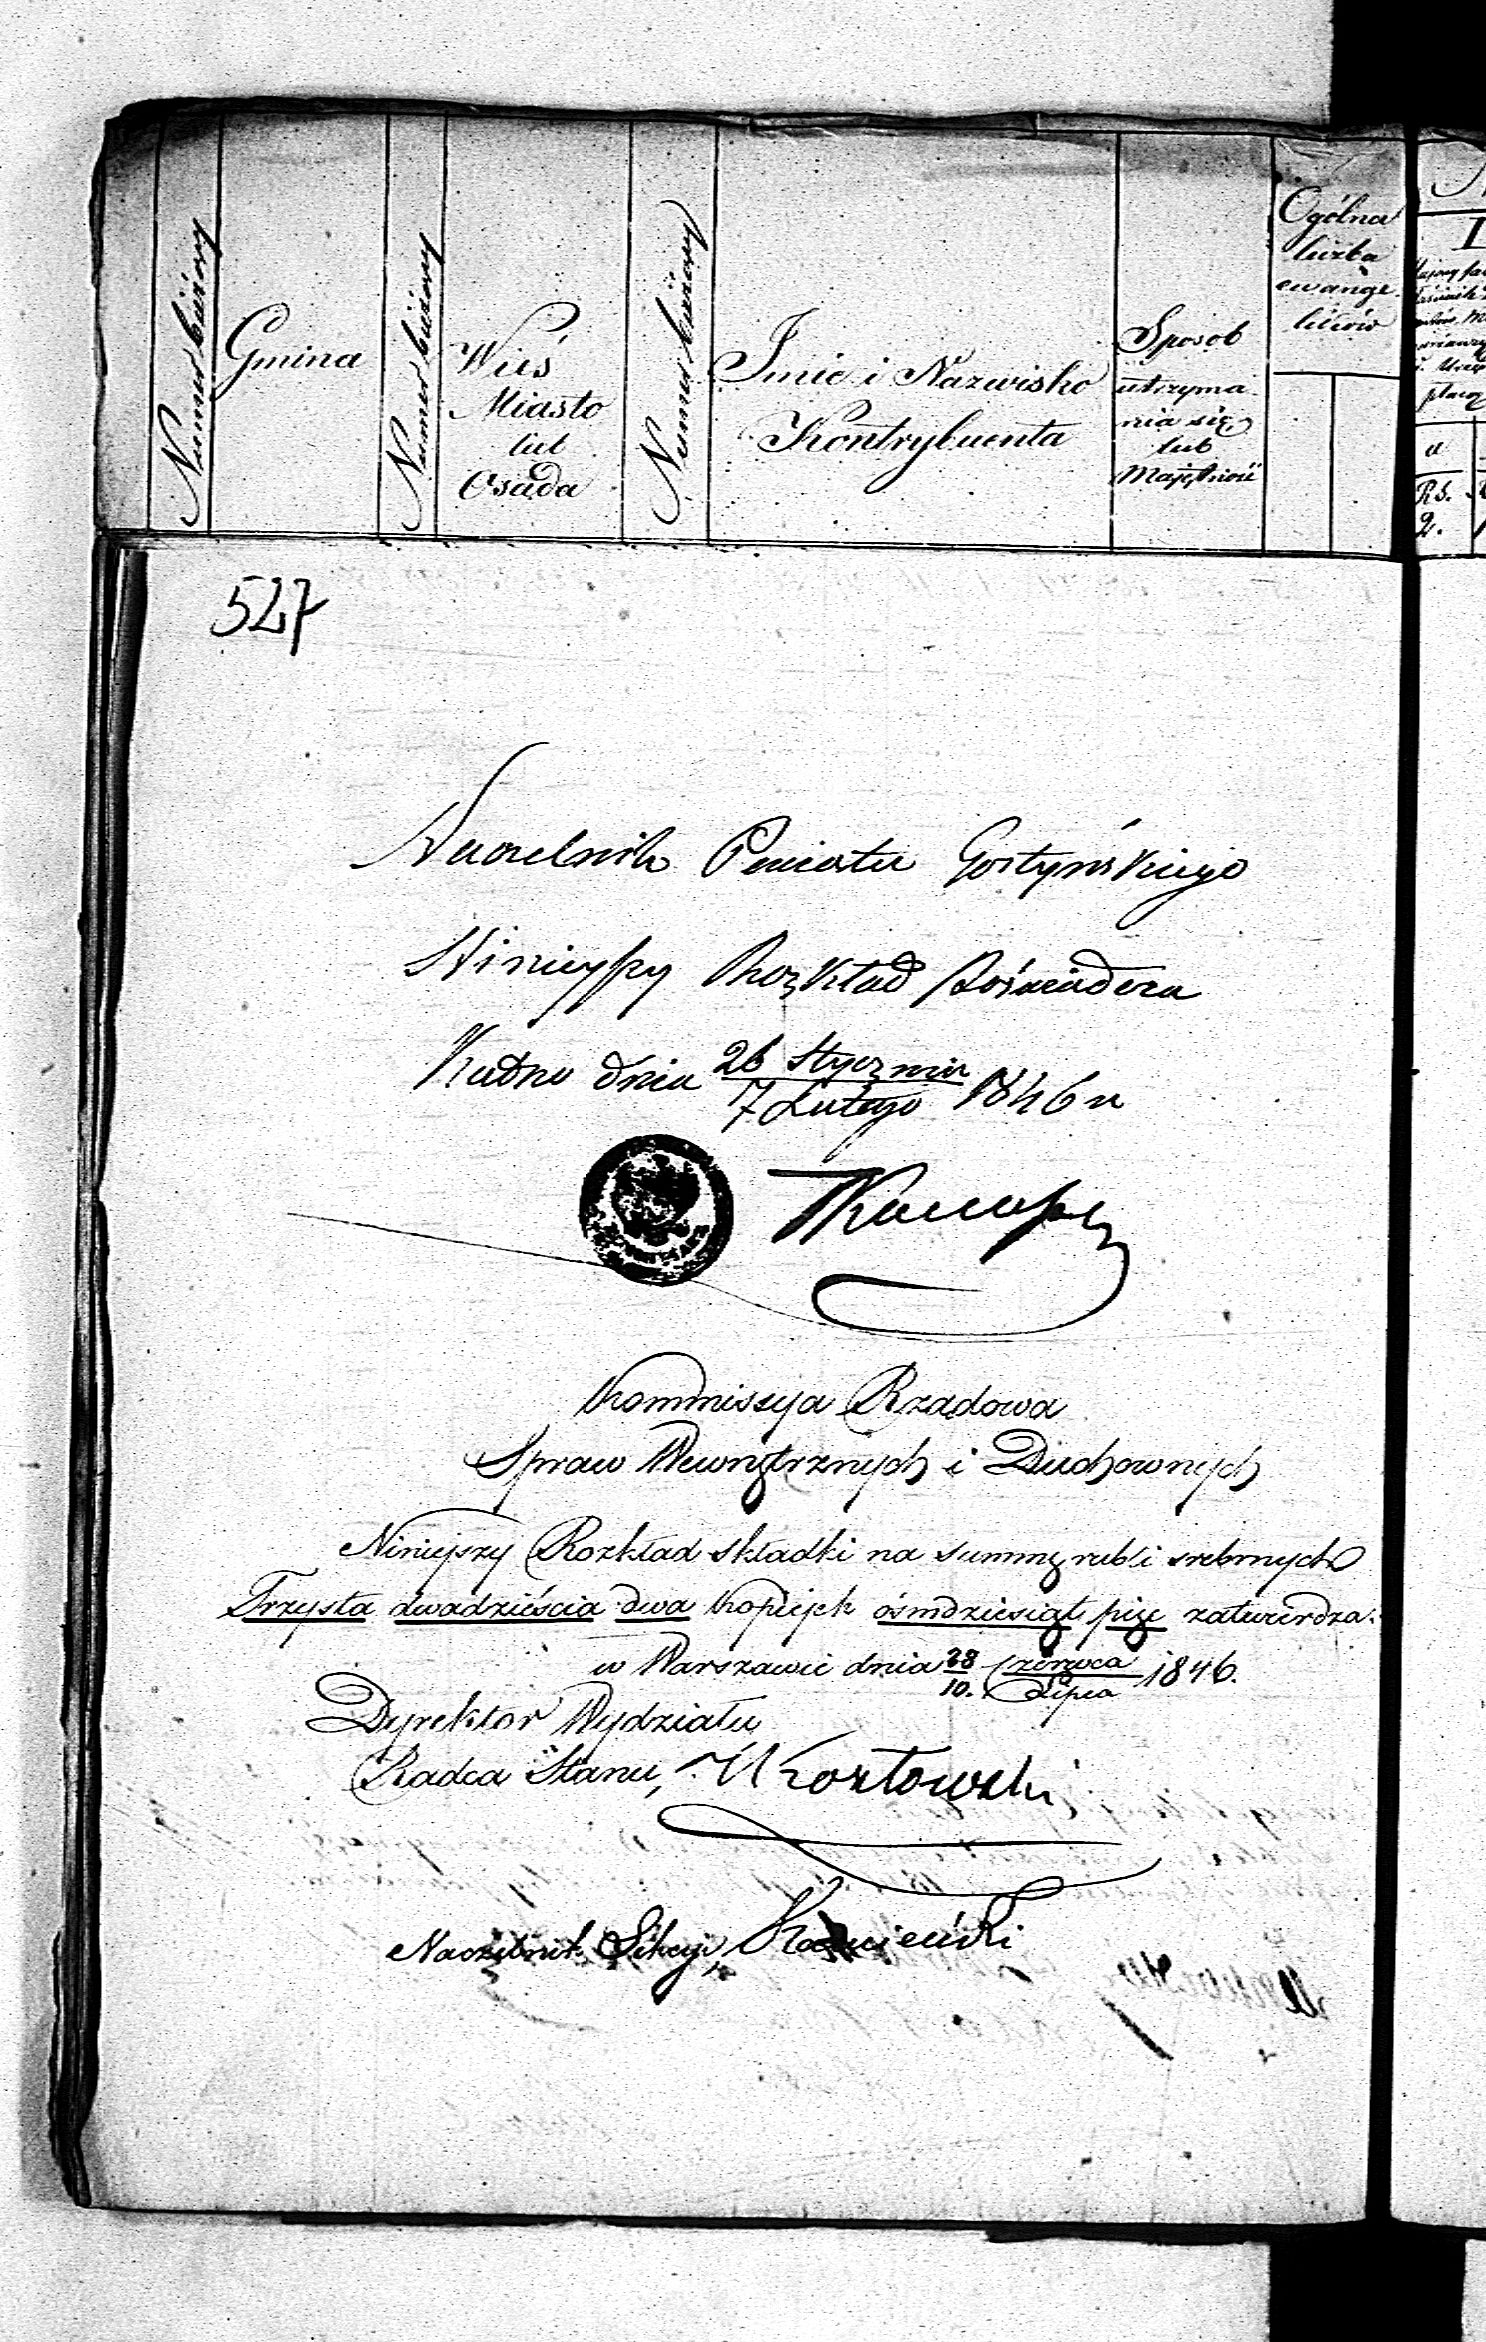 Numer bieżący
Gmina
Numer bieżący
Wieś
Miasto
lub
Osada
Numer bieżący
Imie i Nazwisko
Kontrybuenta
Sposob
utrzyma
nia się
lub
Majętność
Ogólna
liczba
ewange-
lików
a
Rs.
2.
527
Naczelnik Powiatu Gostyńskiego
Niniejszy Rozkład Poświadcza
Kutno dnia 26 Stycznia
7 Lutego 1846 r
Kommissya Rządowa
Spraw Wewnętrznych i Duchownych
Niniejszy Rozkład składki na summę rubli srebrnych
Trzysta dwadzieścia dwa kopiejek ośmdziesiąt pięc zatwierdza.
w Warszawie dnia 28 Czerwca
10. Lipca 1846.
Dyrektor Wydziału
Radca Stanu, Kozłowski
Naczelnik Sekcyi,